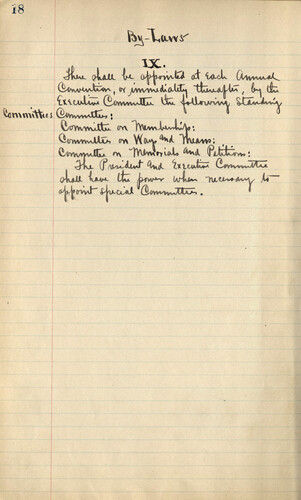 18
By-Laws
IX.
There shall be appointed at each Annual
Convention, or immediately thereafter, by the
Executive Committee the following Standing
Committees Committees:
Committee on Membership:
Committee on Ways and Means:
Committee on Memorials and Petitions:
The President and Executive Committee
shall have the power when necessary to
appoint special Committees.